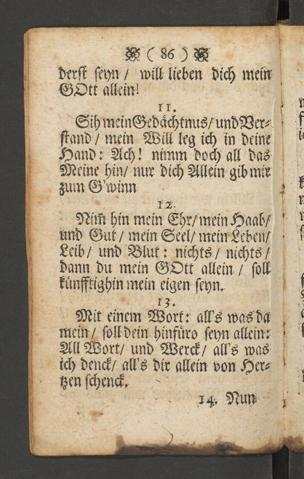 ( 86 )
derst seyn / will lieben dich mein
GOtt allein!
11.
Sih mein Gedächtnus / und Ver-
stand / mein Will leg ich in deine
Hand: Ach! nimm doch all das
Meine hin / nur dich Allein gib mir
zum G'winn
12.
Nim̄ hin mein Ehr / mein Haab /
und Gut / mein Seel / mein Leben /
Leib / und Blut: nichts / nichts /
dann du mein GOtt allein / soll
künfftighin mein eigen seyn.
13.
Mit einem Wort: all's was da
mein / soll dein hinfüro seyn allein:
All Wort / und Werck / all's was
ich denck / all's dir allein von Her-
tzen schenck.
14. Nun